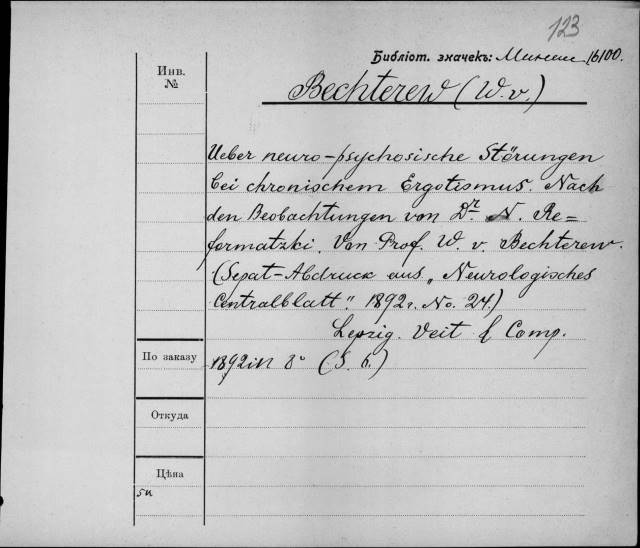 123
Библіот. значекъ: 16100.
Инв.
№
Bechterew (W. v.)
Ueber neuro-psychosische Störungen
bei chronischem Ergotismus. Nach
den Beobachtungen von Dr. N. Re=
formatzki. Von Prof. W. v. Bechterew.
(Sepat-Abdruck aus „Neurologisches
Centralblatt“. 1892г. No. 24.)
Leipzig. Veit & Comp.
По заказу
1892 in 8° (S. 6.)
Откуда
Цѣна